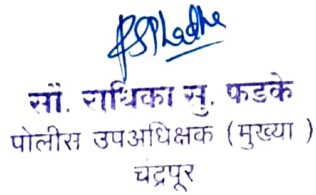 सौ. राधिका सु. फडके
पोलीस उपअधिक्षक (मुख्या )
चंद्रपूर